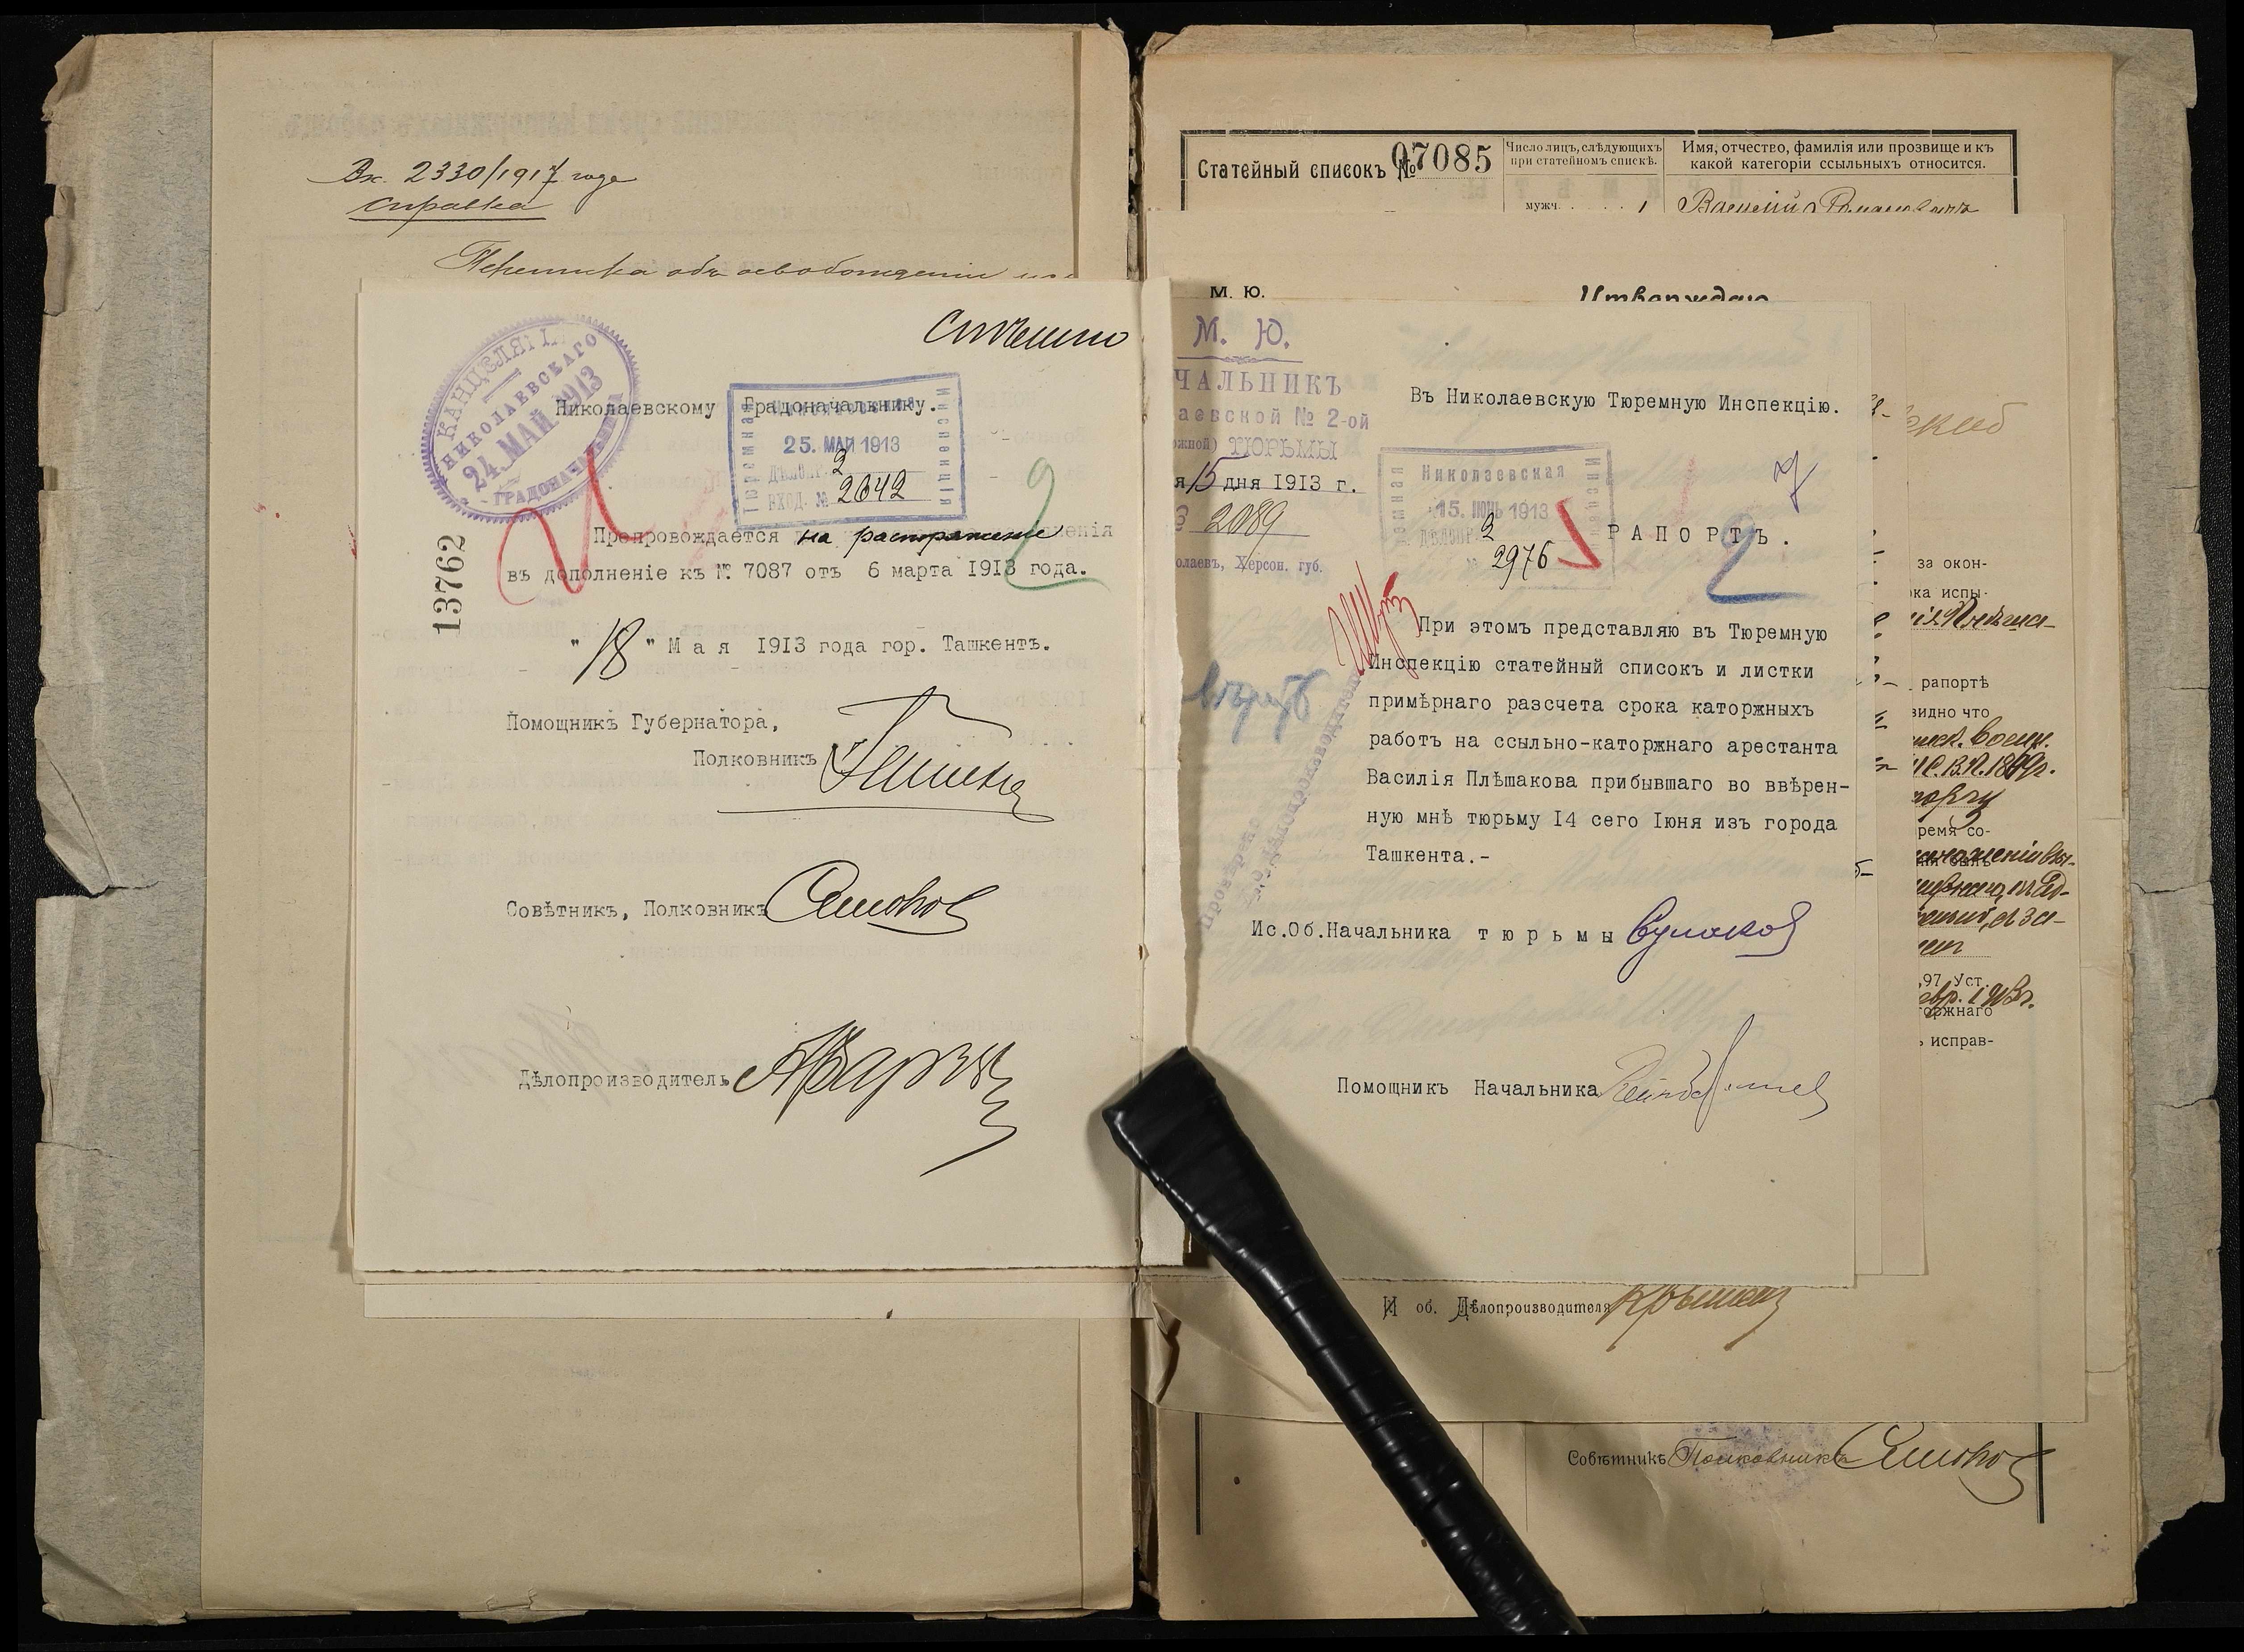 Вх. 2330/1917 года
Справка
Переписка объ освобожденiи
Спѣшно
КАНЦЕЛЯРIЯ
НИКОЛАЕВСКАГО
24. МАЙ 1913
ГРАДОНАЧАЛЬНИКА
Николаевскому Градоначальнику.
Тюремная Инспекція
25. МАЙ 1913
ДѢЛОПР. 2
ВХОД. № 2642
2
Препровождается на распоряженіе
въ дополненіе къ № 7087 отъ 6 марта 1913 года.
13762
"18" Мая 1913 года гор. Ташкентъ.
Помощникъ Губернатора,
Полковникъ
Совѣтникъ, Полковникъ
Дѣлопроизводитель
Статейный списокъ № 07085
Число лицъ, слѣдующихъ
при статейномъ спискѣ.
Имя, отчество, фамилія или прозвище и къ
какой категоріи ссыльныхъ относится.
мужч. . . . . 1
Василій Романовичъ
М. Ю.
Утверждаю
М. Ю.
ЧАЛЬНИКЪ
аевской № 2-ой
ожной) ТЮРЬМЫ
я 15 дня 1913 г.
2089
олаевъ, Херсон. губ.
Въ Николаевскую Тюремную Инспекцію.
Николаевская
Тюремная Инспекція
15. ІЮНЬ 1913
ДѢЛОПР. 2
№ 2976
7
РАПОРТЪ.
2
При этомъ представляю въ Тюремную
Инспекцію статейный списокъ и листки
примѣрнаго разсчета срока каторжныхъ
работъ на ссыльно-каторжнаго арестанта
Василія Плѣшакова прибывшаго во ввѣрен-
ную мнѣ тюрьму 14 сего Іюня изъ города
Ташкента.-
Провѣрено
Ис.Об.Начальника тюрьмы
Помощникъ Начальника
за окон-
ока испы-
рапортѣ
видно что
воен.
С.В.П. 1869г.
ремя со-
97 Уст.
оржнаго
исправ-
И об. Дѣлопроизводителя
Совѣтникъ Полковникъ